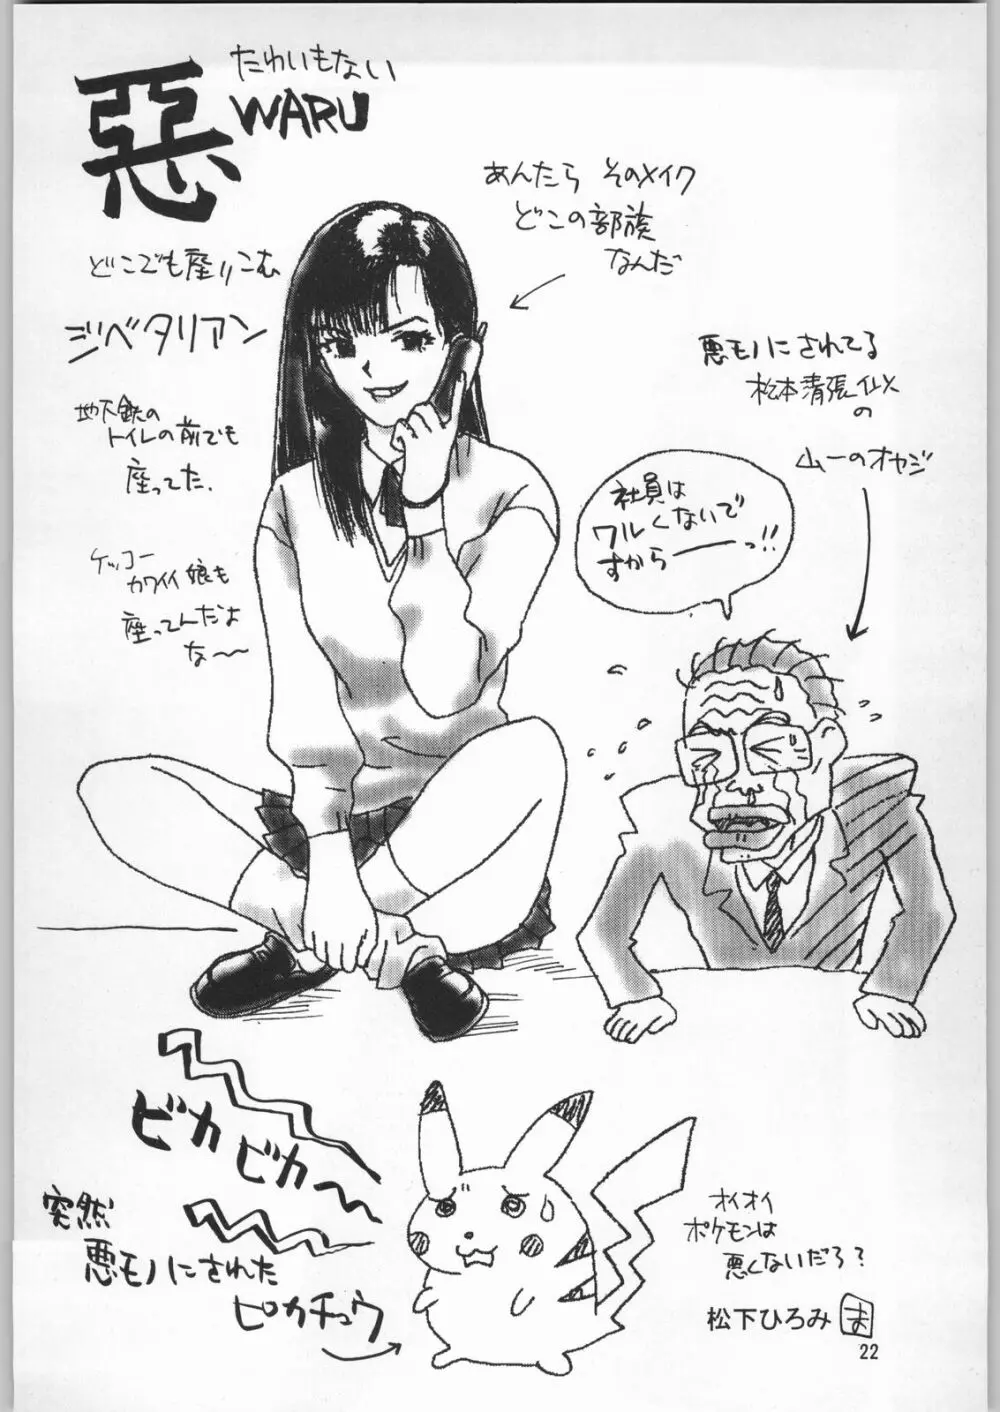 悪
たわいもない
WARU
あんたら そのメイク
どこの部族
なんだ
どこでも座りこむ
ジベタリアン
地下鉄の
トイレの前でも
座ってた.
ケッコー
カワイイ娘も
座ってんだよ
な〜〜
悪モノにされてる
松本清張似
の
山一のオヤジ
社員は
ワルくないで
すからーーっ!!
ビカ
ビカ〜
突然
悪モノにされた
ピカチュウ
オイオイ
ポケモンは
悪くないだろ?
松下ひろみ
ま
22